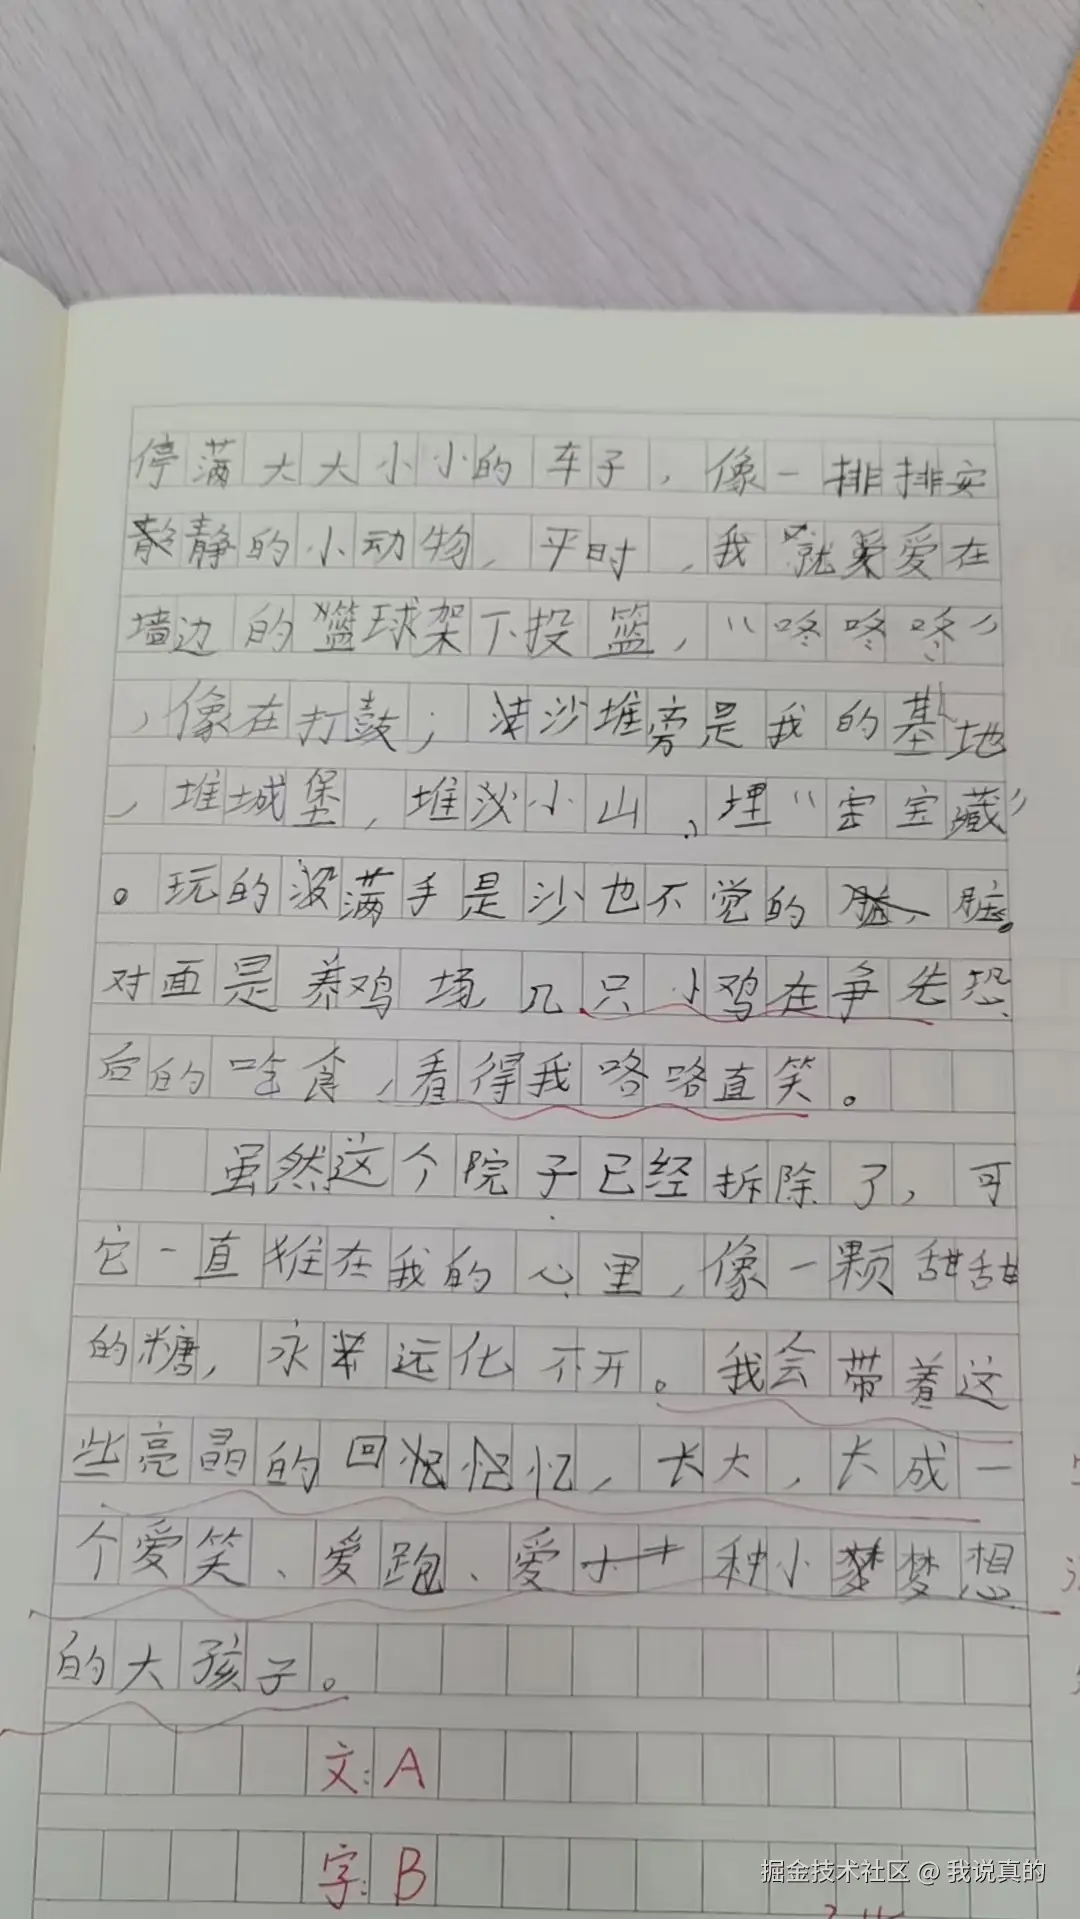 停满大大小小的车子，像一排排安
静静的小动物，平时，我就爱爱在
墙边的篮球架下投篮，“咚咚咚”
，像在打鼓；沙堆旁是我的基地
，堆城堡，堆沙小山、埋“宝宝藏”
。玩的满手是沙也不觉的脏。
对面是养鸡场几只小鸡在争先恐
后的吃食，看得我咯咯直笑。
虽然这个院子已经拆除了，可
它一直在我的心里，像一颗甜甜
的糖，永远化不开。我会带着这
些亮晶的回忆，长大，长成一
个爱笑、爱跑、爱种小梦想
的大孩子。
文：A
字：B
掘金技术社区 @ 我说真的